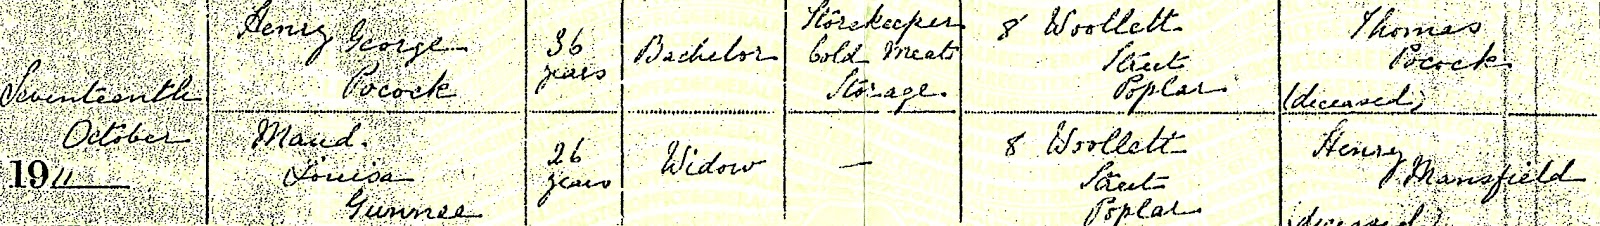 Seventeenth
October
1911
Henry George
Pocock
36
years
Bachelor
Storekeeper
Cold Meats
Storage.
8 Woollett
Street
Poplar
Thomas
Pocock
(deceased)
Maud.
Louisa
Gunnee
26
years
Widow
—
8 Woollett
Street
Poplar
Henry
Mansfield
(deceased)